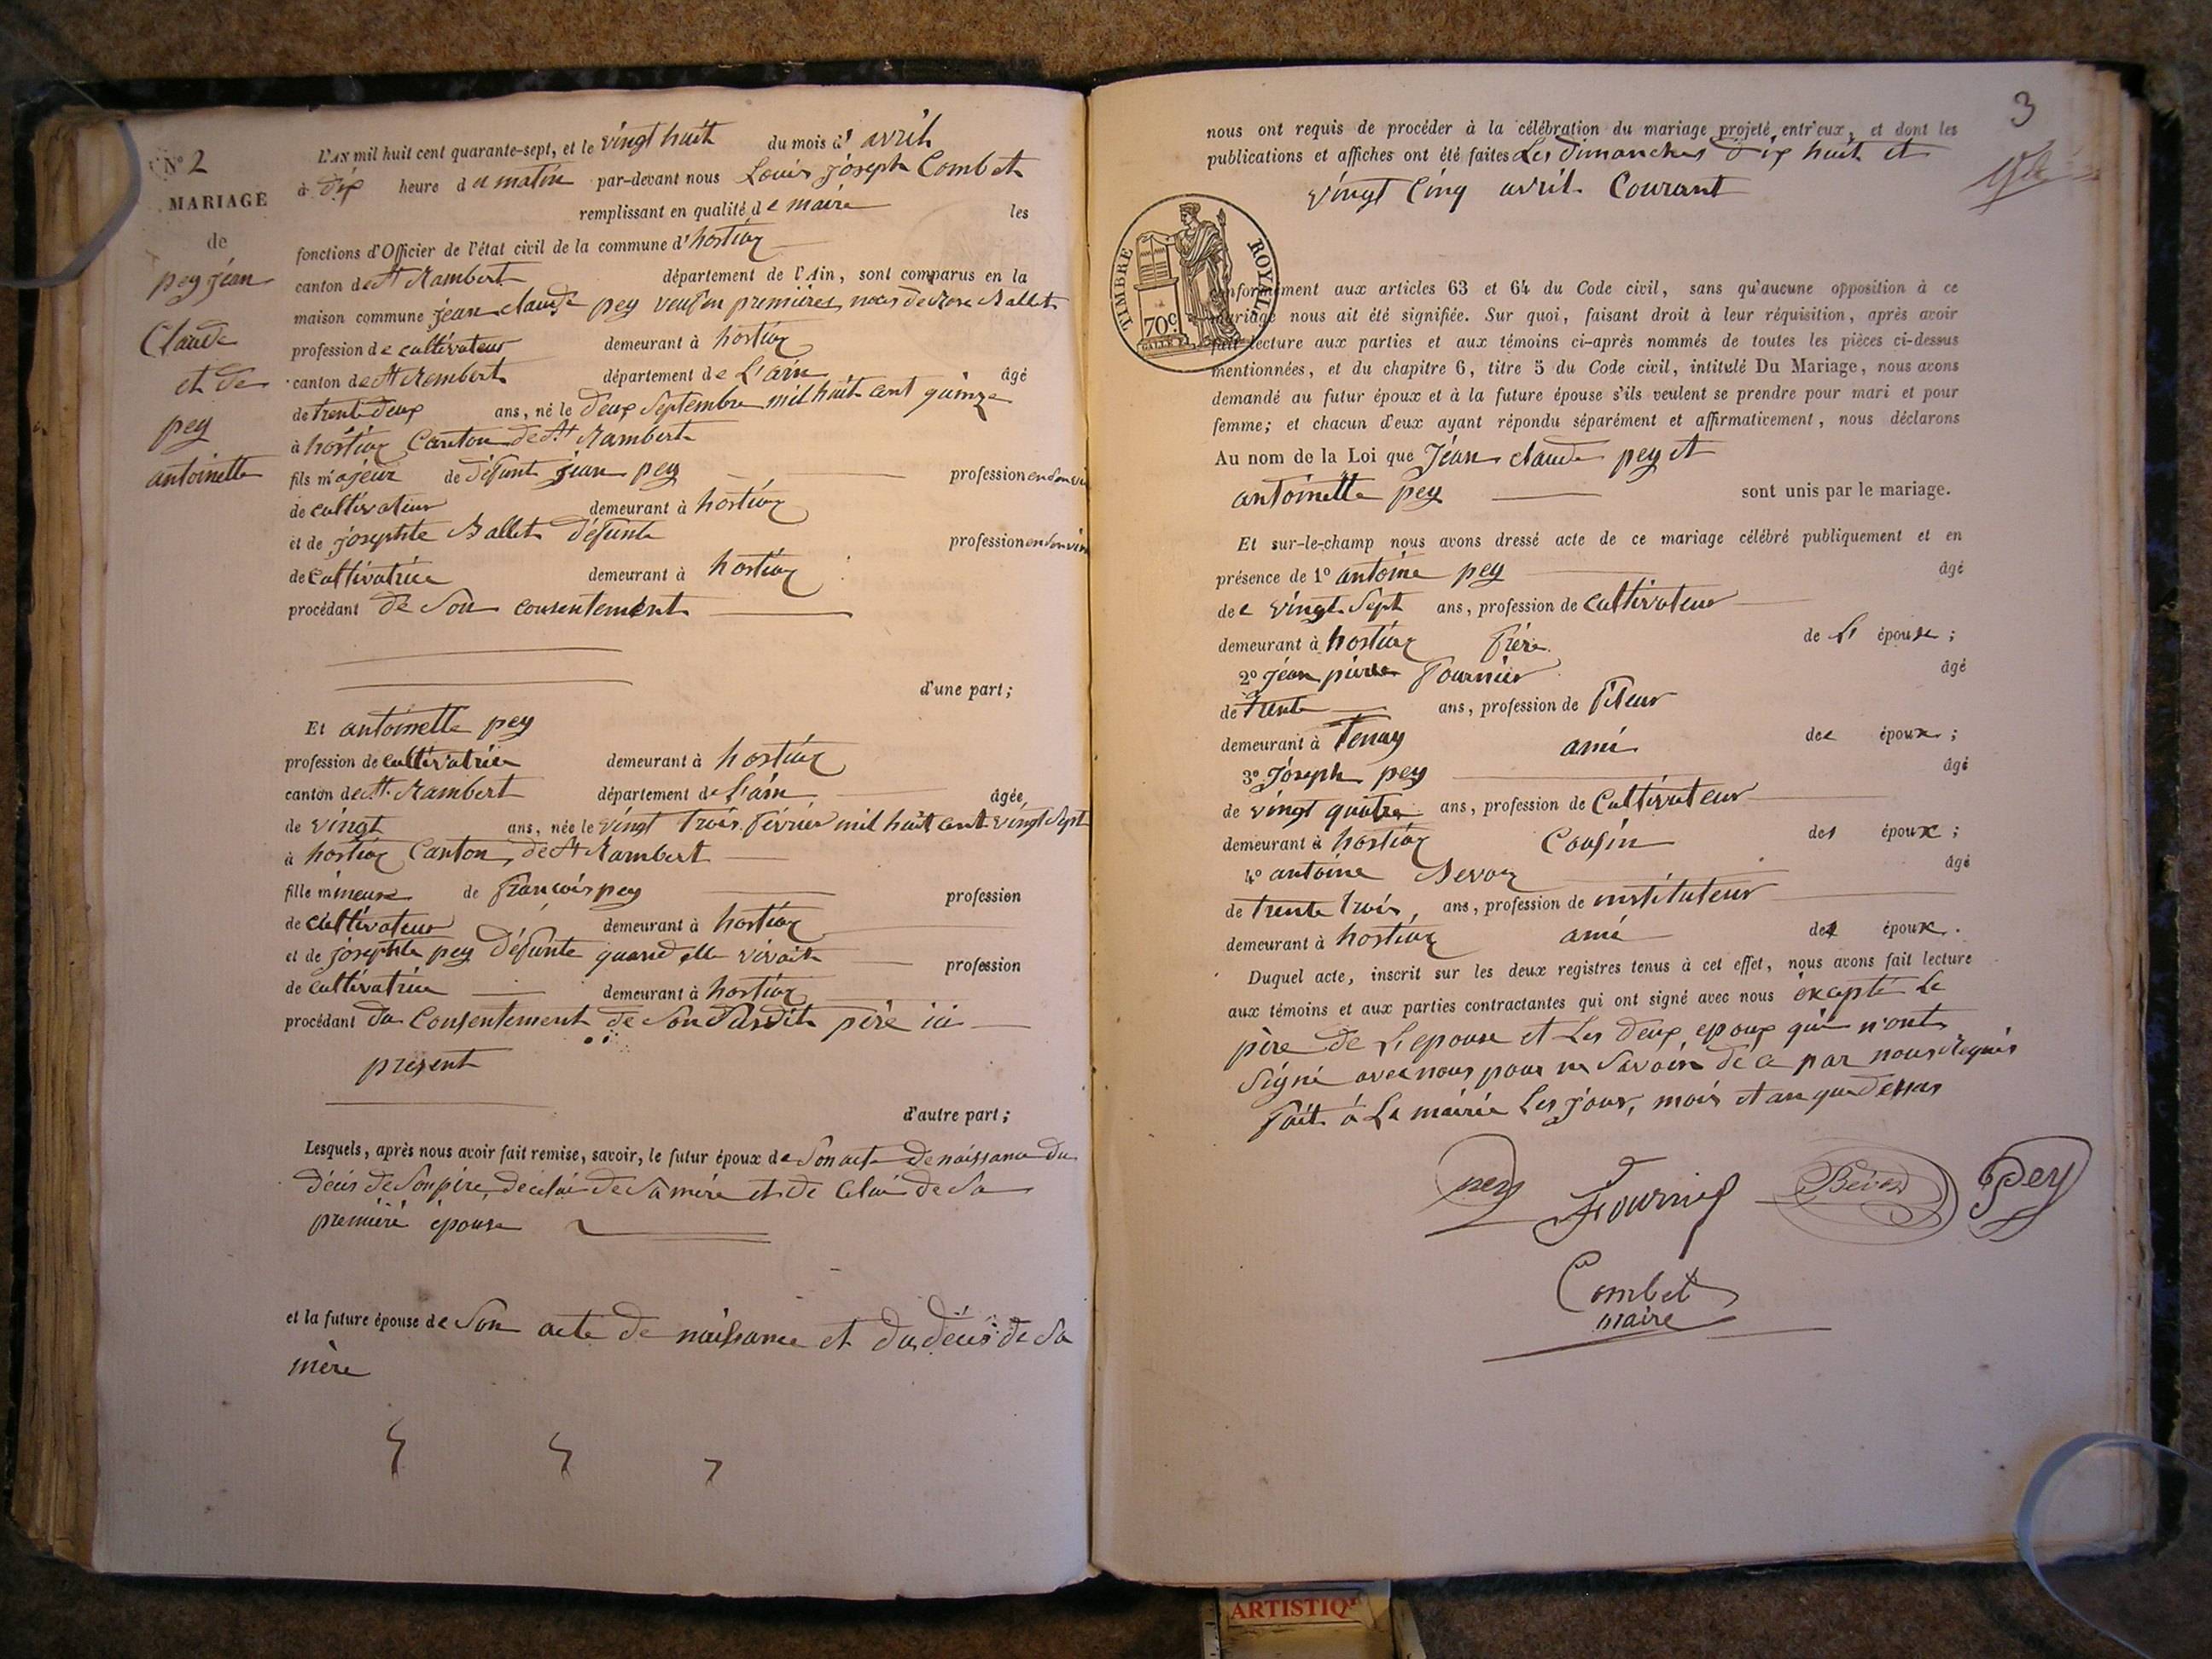 N° 2
MARIAGE
de
pey jean
Claude
et de
pey
antoinette
L'AN mil huit cent quarante-sept, et le vingt huit du mois d' avril
à dix heure du matin par-devant nous Louis joseph Combet
remplissant en qualité de maire les
fonctions d'Officier de l'état civil de la commune d'hostiaz
canton de St Rambert département de l'Ain, sont comparus en la
maison commune jean claude pey veuf en premières noces de Rose Ballet
profession de cultivateur demeurant à hostiaz
canton de St Rembert département de L'ain âgé
de trente deux ans, né le deux Septembre mil huit cent quinze
à hostiaz Canton de St Rambert
fils majeur de défunt jean pey profession en son vi
de cultivateur demeurant à hostiaz
et de josephte Ballet défunte profession en son viv
de cultivatrice demeurant à hostiaz
procédant de Son consentement
d'une part;
Et antoinette pey
profession de cultivatrice demeurant à hostiaz
canton de St. Rambert département de L'ain âgée
de vingt ans, née le vingt trois février mil huit cent vingt Sept
à hostiaz Canton de St Rambert
fille mineure de françois pey profession
de cultivateur demeurant à hostiaz
et de josephte pey défunte quand elle vivait profession
de cultivatrice demeurant à hostiaz
procédant du Consentement de Son Susdit père ici
present
d'autre part;
Lesquels, après nous avoir fait remise, savoir, le futur époux de Son acte de naissance du
décès de Son père, de celui de Sa mère et de Celui de Sa
première épouse
et la future épouse de Son acte de naissance et du décès de Sa
mère
3
nous ont requis de procéder à la célébration du mariage projeté entr'eux, et dont les
publications et affiches ont été faites Les dimanches dix huit et
vingt Cinq avril Courant
TIMBRE ROYAL
70c.
conformément aux articles 63 et 64 du Code civil, sans qu'aucune opposition à ce
mariage nous ait été signifiée. Sur quoi, faisant droit à leur réquisition, après avoir
fait lecture aux parties et aux témoins ci-après nommés de toutes les pièces ci-dessus
mentionnées, et du chapitre 6, titre 5 du Code civil, intitulé Du Mariage, nous avons
demandé au futur époux et à la future épouse s'ils veulent se prendre pour mari et pour
femme; et chacun d'eux ayant répondu séparément et affirmativement, nous déclarons
Au nom de la Loi que Jean claude pey et
antoinette pey sont unis par le mariage.
Et sur-le-champ nous avons dressé acte de ce mariage célébré publiquement et en
présence de 1° antoine pey âgé
de vingt Sept ans, profession de cultivateur
demeurant à hostiaz frère de L' épouse;
2° jean pierre fournier âgé
de trente ans, profession de fileur
demeurant à Tenay ami des époux;
3° Joseph pey âgé
de vingt quatre ans, profession de Cultivateur
demeurant à hostiaz Cousin des époux;
4° antoine Bevoz âgé
de trente trois, ans, profession de instituteur
demeurant à hostiaz ami des époux.
Duquel acte, inscrit sur les deux registres tenus à cet effet, nous avons fait lecture
aux témoins et aux parties contractantes qui ont signé avec nous excepté Le
père de L'epouse et Les deux epoux qui n'ont
Signé avec nous pour ne Savoir de ce par nous Requis
fait à La mairie Les jour, mois et an que dessus
pey Fournier Bévoz Pey
Combet
maire
ARTISTIQ